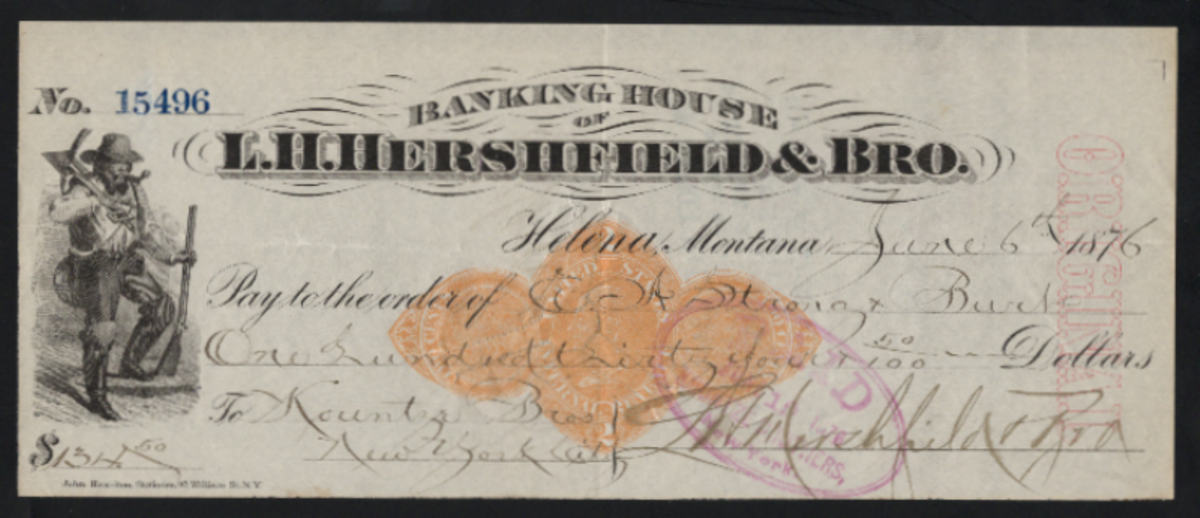 No. 15496
BANKING HOUSE
OF
L.H. HERSHFIELD & BRO.
Helena, Montana, June 6th 1876
Pay to the order of E. Strong & Burt
One Hundred thirty four & 50/100 Dollars
To Kountze Bros
New York City
L H Hershfield & Bro
$134 50
ORIGINAL
PAID
New York
John Hamilton, Stationer, 97 William St. N.Y.